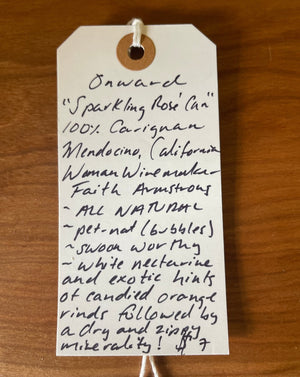 Onward
"Sparkling Rosé Can"
100% Carignan
Mendocino, California
Woman Winemaker
Faith Armstrong
~ ALL NATURAL
~ pet-nat (bubbles)
~ swoon worthy
~ white nectarine
and exotic hints
of candied orange
rinds followed by
a dry and zippy
minerality! $7